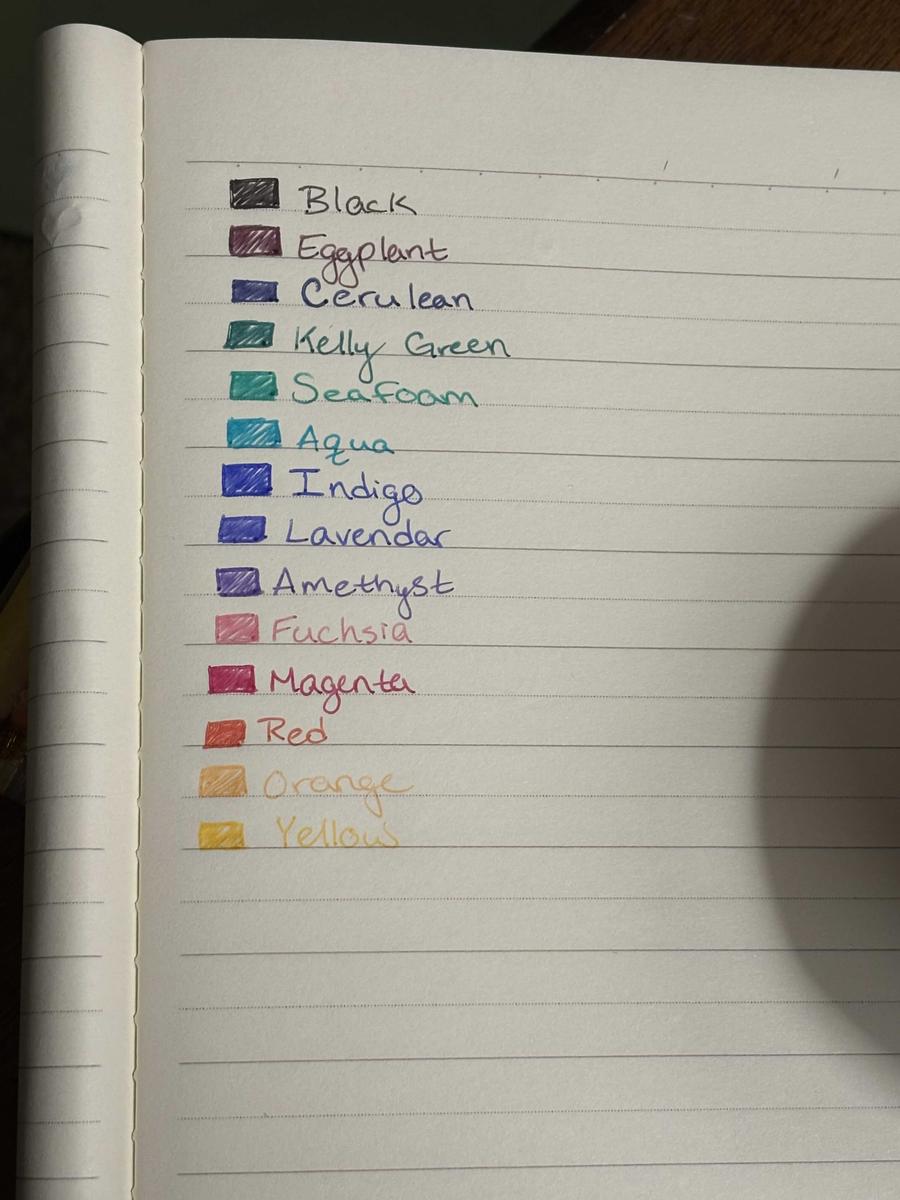 Black
Eggplant
Cerulean
Kelly Green
Seafoam
Aqua
Indigo
Lavendar
Amethyst
Fuchsia
Magenta
Red
Orange
Yellow